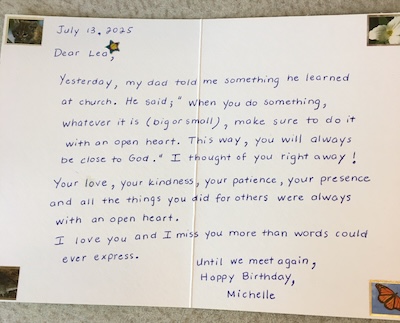 July 13, 2025
Dear Lea,
Yesterday, my dad told me something he learned
at church. He said; "When you do something,
whatever it is (big or small), make sure to do it
with an open heart. This way, you will always
be close to God." I thought of you right away!
Your love, your kindness, your patience, your presence
and all the things you did for others were always
with an open heart.
I love you and I miss you more than words could
ever express.
Until we meet again,
Happy Birthday,
Michelle